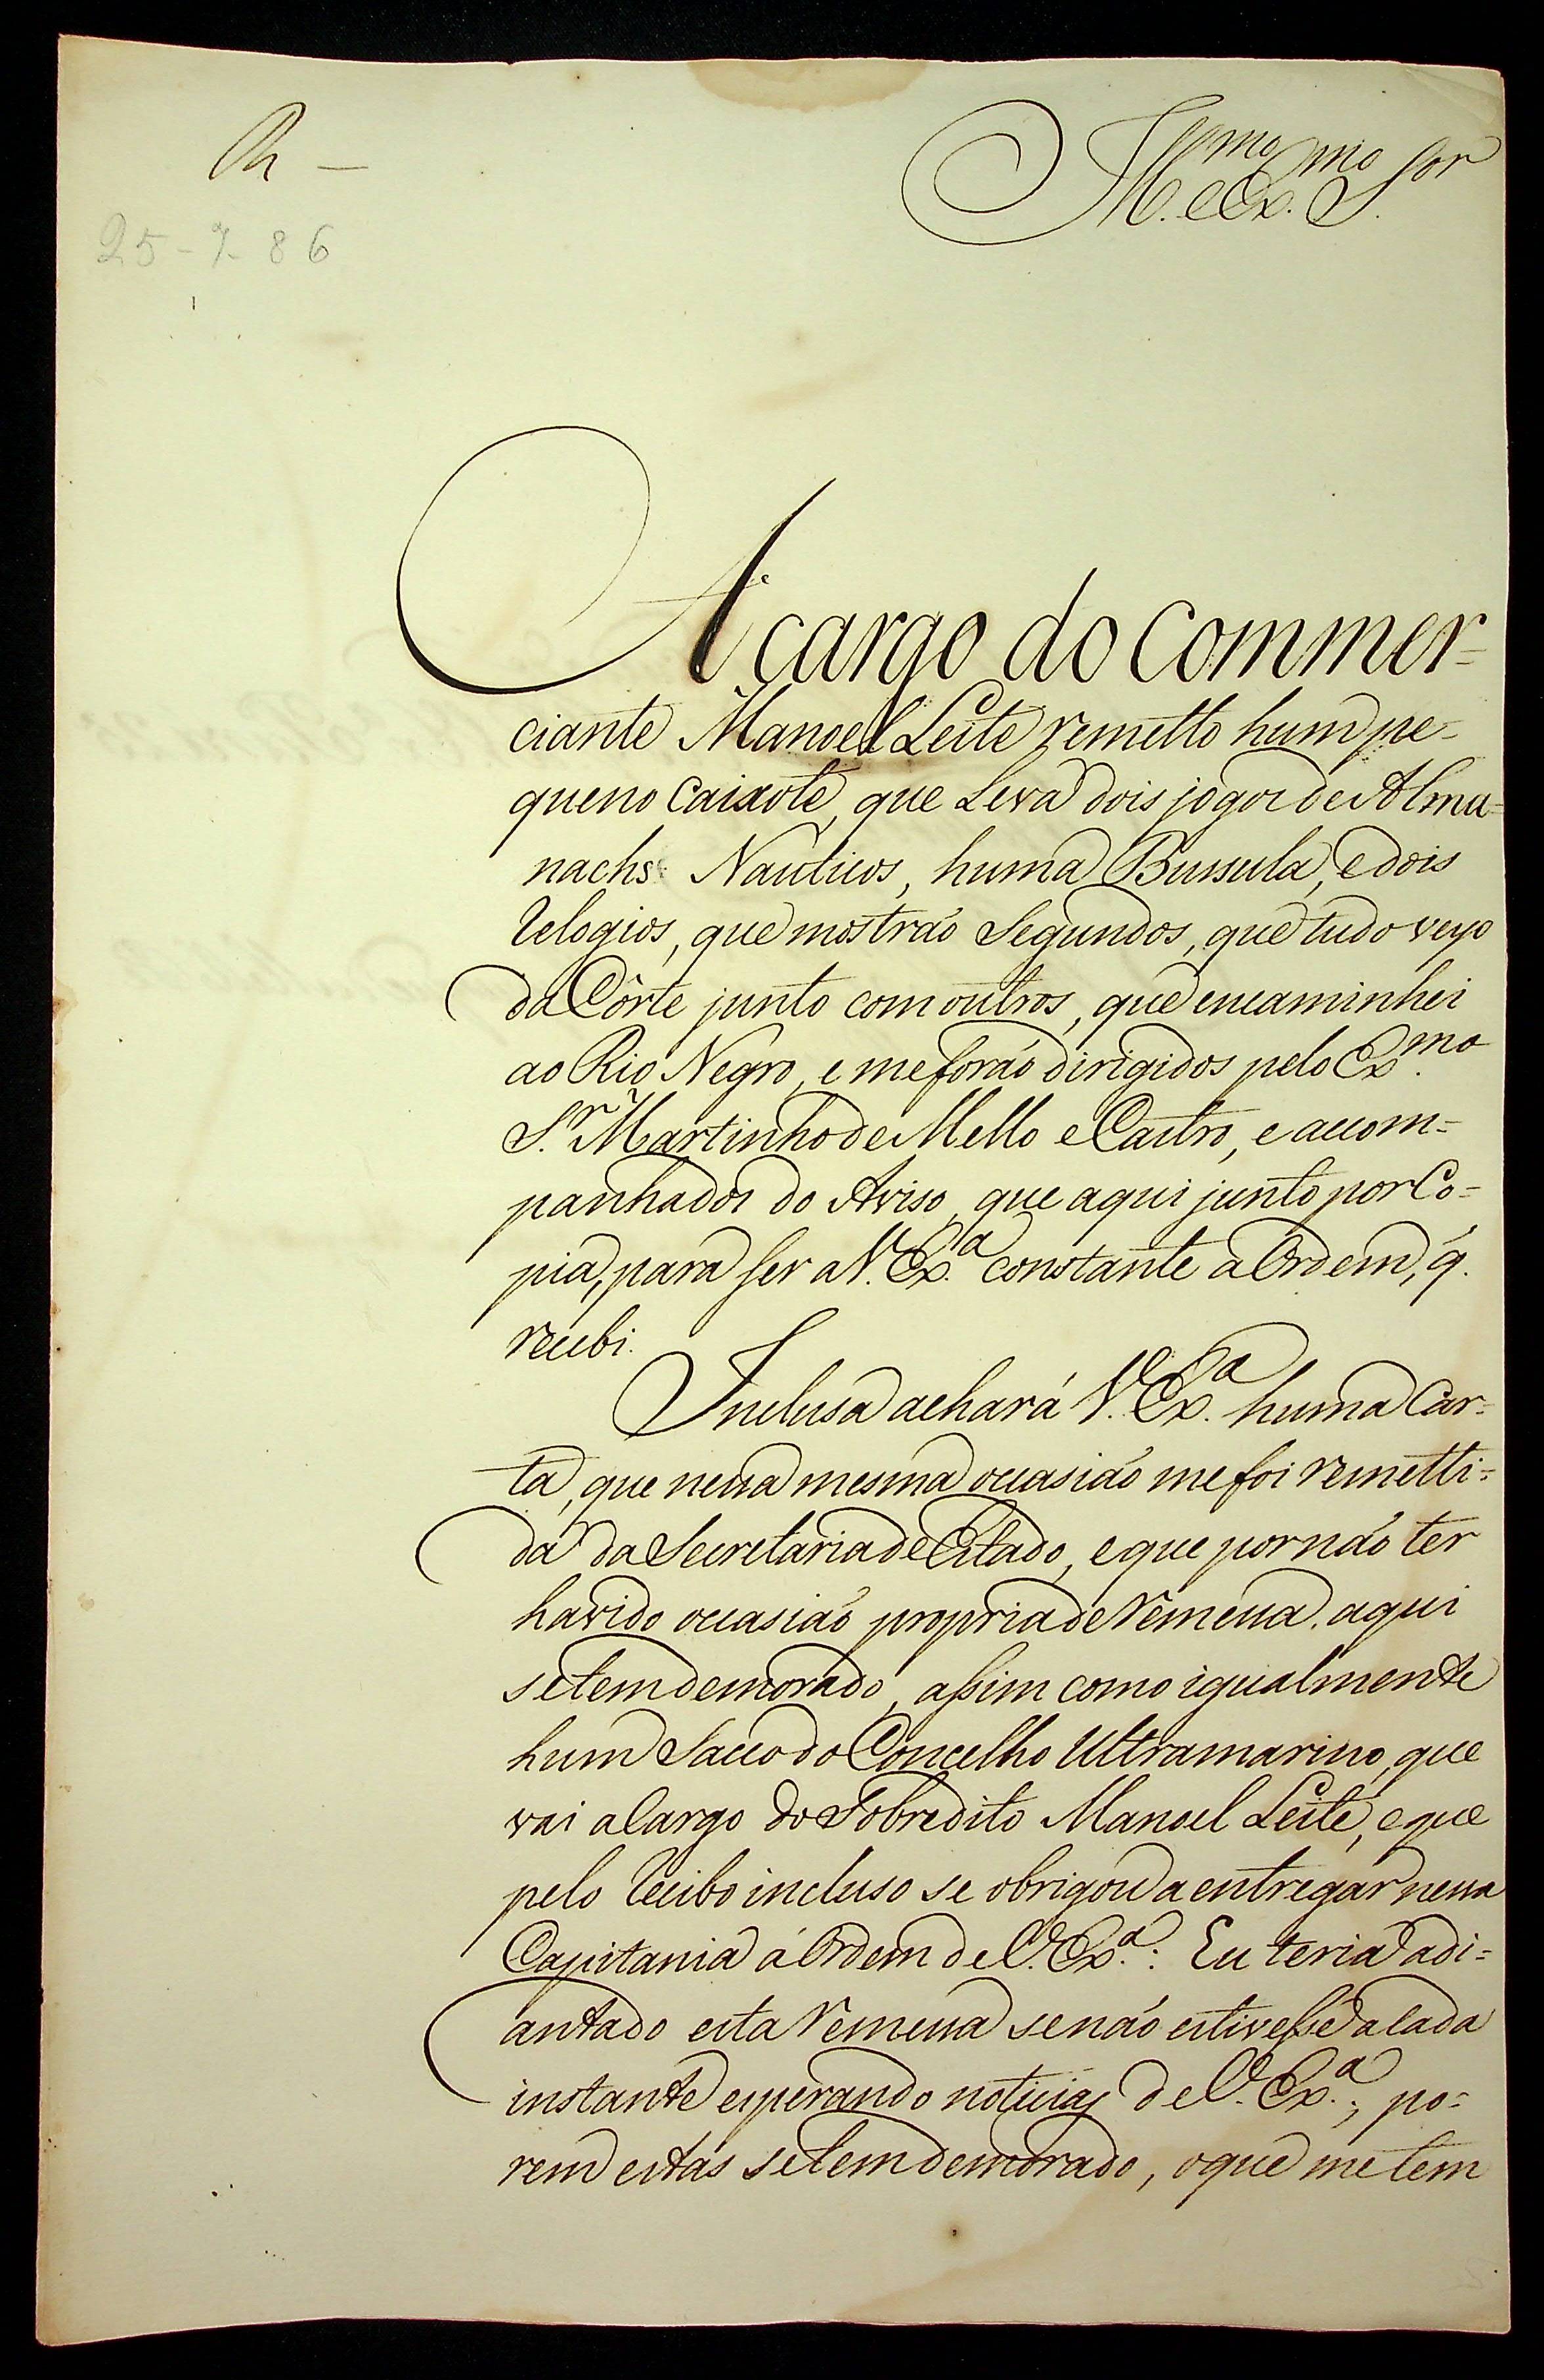 R —
Ill.mo e Ex.mo S.or
25-7-86
A cargo do Commer=
ciante Manoel Leite remetto hum pe=
queno Caixote, que Leva dois jogos de Alma=
nachs Nauticos, huma Bussula, e dois
relogios, que mostraõ Segundos, que tudo veyo
da Côrte junto com outros, que encaminhei
ao Rio Negro, e me foraõ dirigidos pelo Ex.mo
S.r Martinho de Mello e Castro, e accom=
panhados do Aviso, que aqui junto por Co=
pia, para ser a V. Ex.a constante a Ordem, q.
recebi.
Inclusa achará V. Ex.a huma Car=
ta, que nessa mesma occasiaõ me foi remetti=
da da Secretaria de Estado, e que por naõ ter
havido occasiaõ propria de remessa, aqui
se tem demorado, assim como igualmente
hum Sacco do Concelho Ultramarino, que
vai a Cargo do Sobredito Manoel Leite, e que
pelo recibo incluso se obrigou a entregar nessa
Capitania á Ordem de V. Ex.a: Eu teria adi=
antado esta remessa se naõ estivesse a Cada
instante esperando noticias de V. Ex.a; po=
rem estas se tem demorado, o que me tem